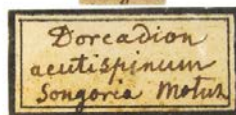 Dorcadion
acutispinum
Songoria Motsch